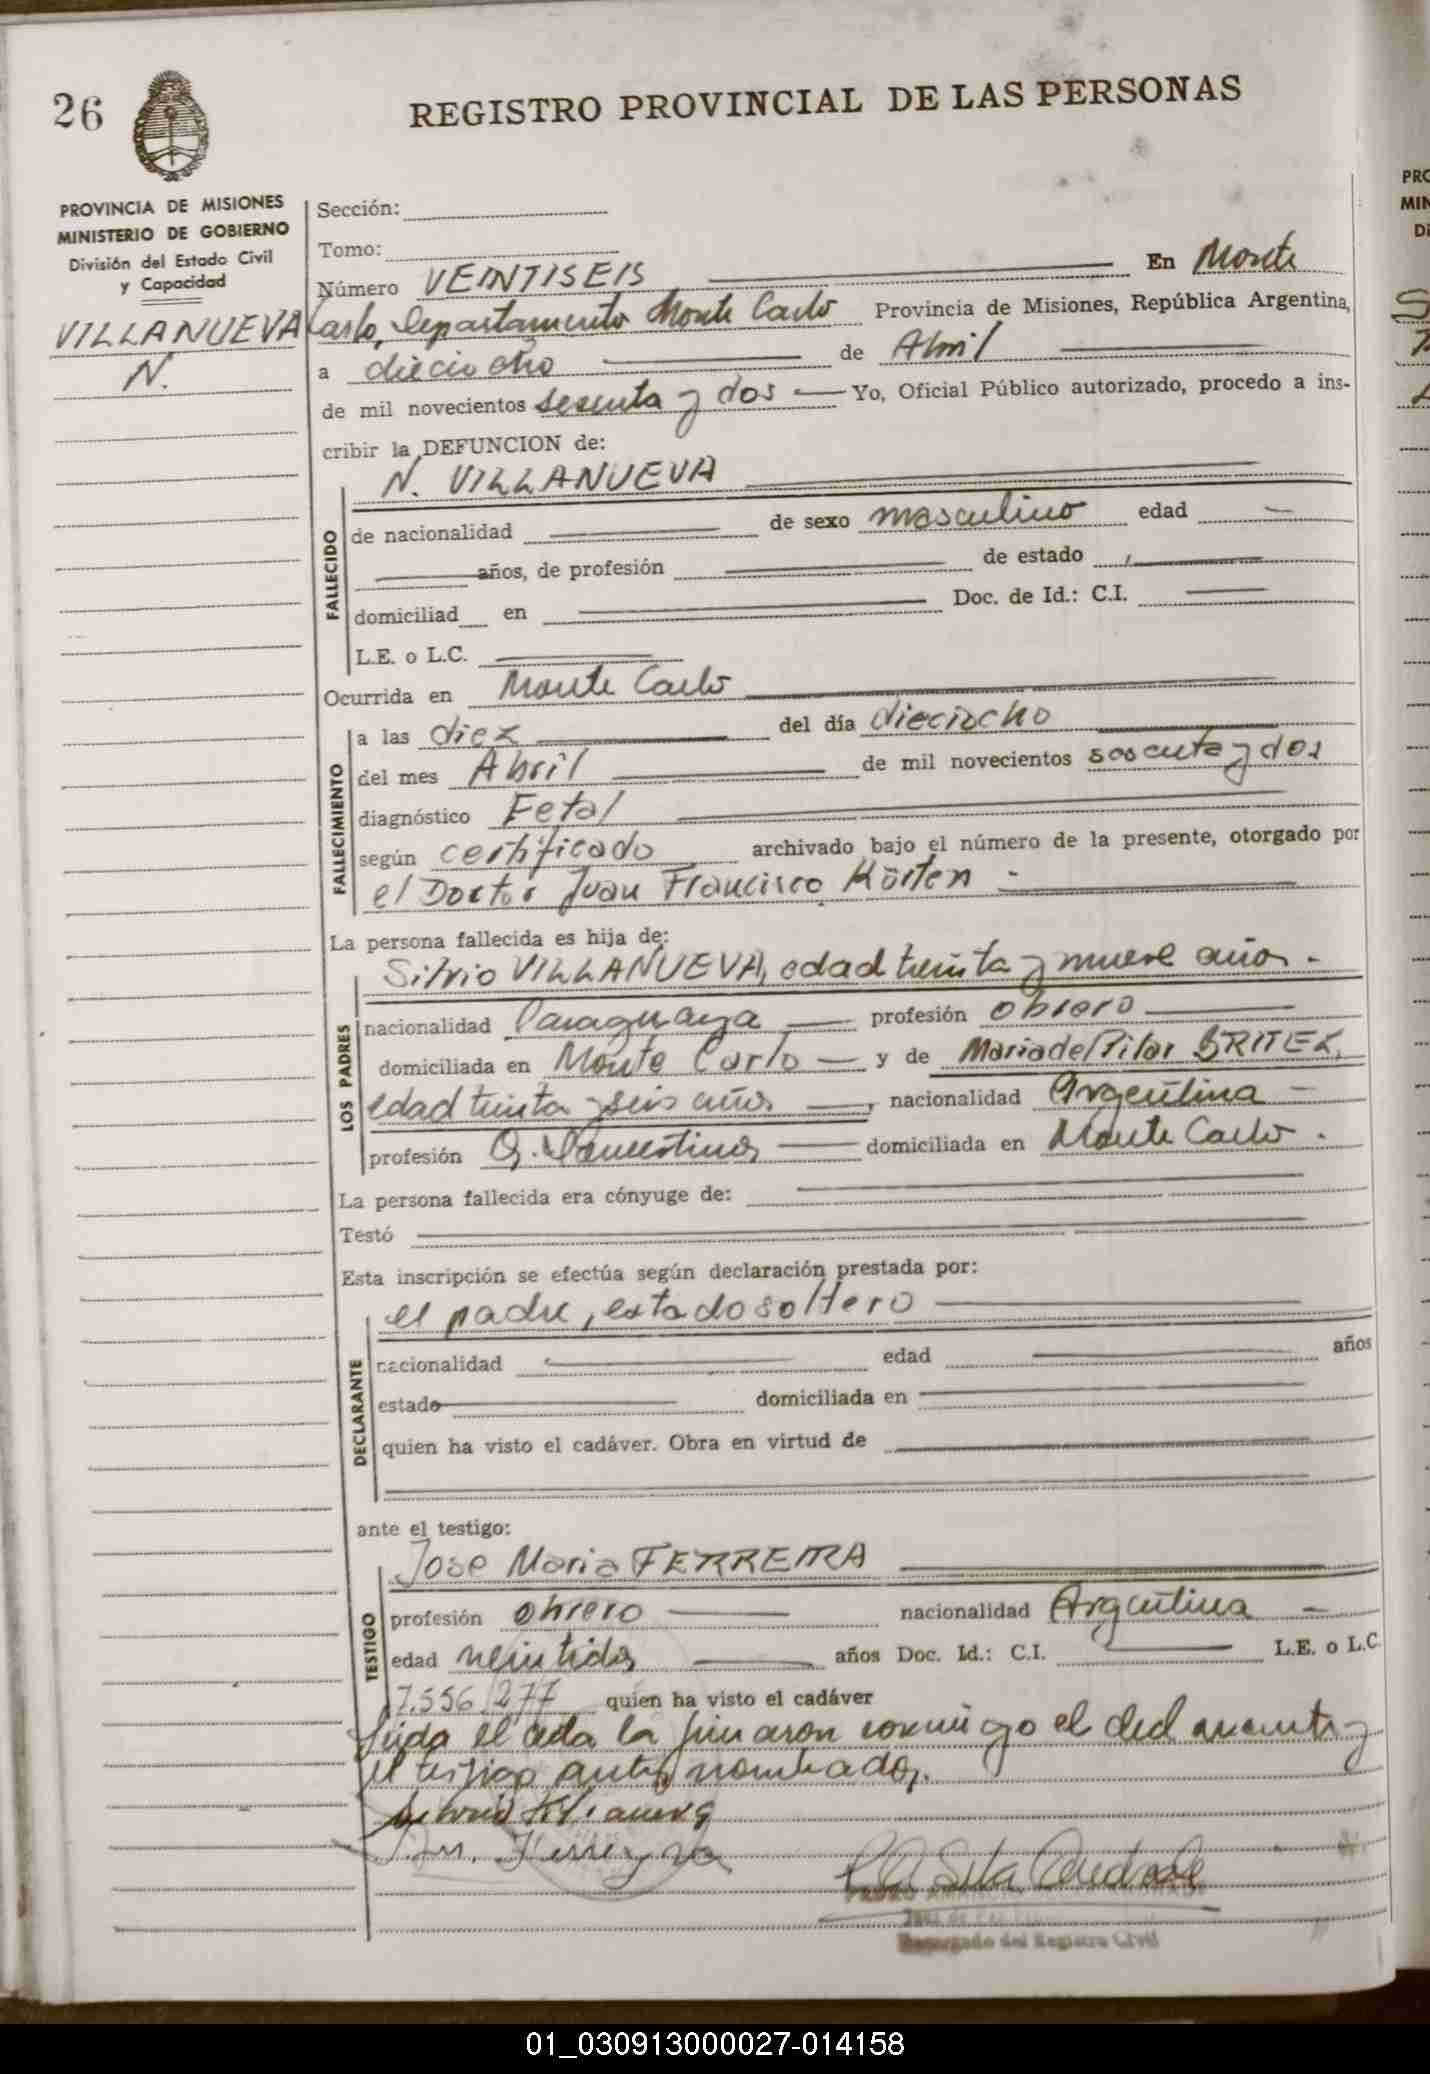 26
REGISTRO PROVINCIAL DE LAS PERSONAS
PROVINCIA DE MISIONES
MINISTERIO DE GOBIERNO
División del Estado Civil
y Capacidad
VILLANUEVA
N.
Sección:
Tomo:
Número VEINTISEIS En Monte
Carlo, Departamento Monte Carlo Provincia de Misiones, República Argentina,
a dieciocho de Abril
de mil novecientos sesenta y dos Yo, Oficial Público autorizado, procedo a ins-
cribir la DEFUNCION de:
N. VILLANUEVA
FALLECIDO
de nacionalidad de sexo masculino edad
años, de profesión de estado
domiciliad en Doc. de Id.: C.I.
L.E. o L.C.
Ocurrida en Monte Carlo
FALLECIMIENTO
a las diez del día dieciocho
del mes Abril de mil novecientos sesenta y dos
diagnóstico Fetal
según certificado archivado bajo el número de la presente, otorgado por
el Doctor Juan Francisco Körten
La persona fallecida es hija de:
LOS PADRES
Silvio VILLANUEVA, edad treinta y nueve años.
nacionalidad Paraguaya profesión obrero
domiciliado en Monte Carlo y de Maria del Pilar BRITEZ,
edad treinta y seis años, nacionalidad Argentina
profesión Q. Domésticos domiciliada en Monte Carlo.
La persona fallecida era cónyuge de:
Testó
Esta inscripción se efectúa según declaración prestada por:
DECLARANTE
el padre, estado soltero
nacionalidad edad años
estado domiciliada en
quien ha visto el cadáver. Obra en virtud de
ante el testigo:
TESTIGO
Jose Maria FERREIRA
profesión obrero nacionalidad Argentina
edad veintidos años Doc. Id.: C.I. L.E. o L.C.
7.556.277 quien ha visto el cadáver
Leída el acta la firmaron conmigo el declarante y
el testigo antes nombrados.
Silvio Villanueva
J. M. Ferreyra
Encargado del Registro Civil
01_030913000027-014158